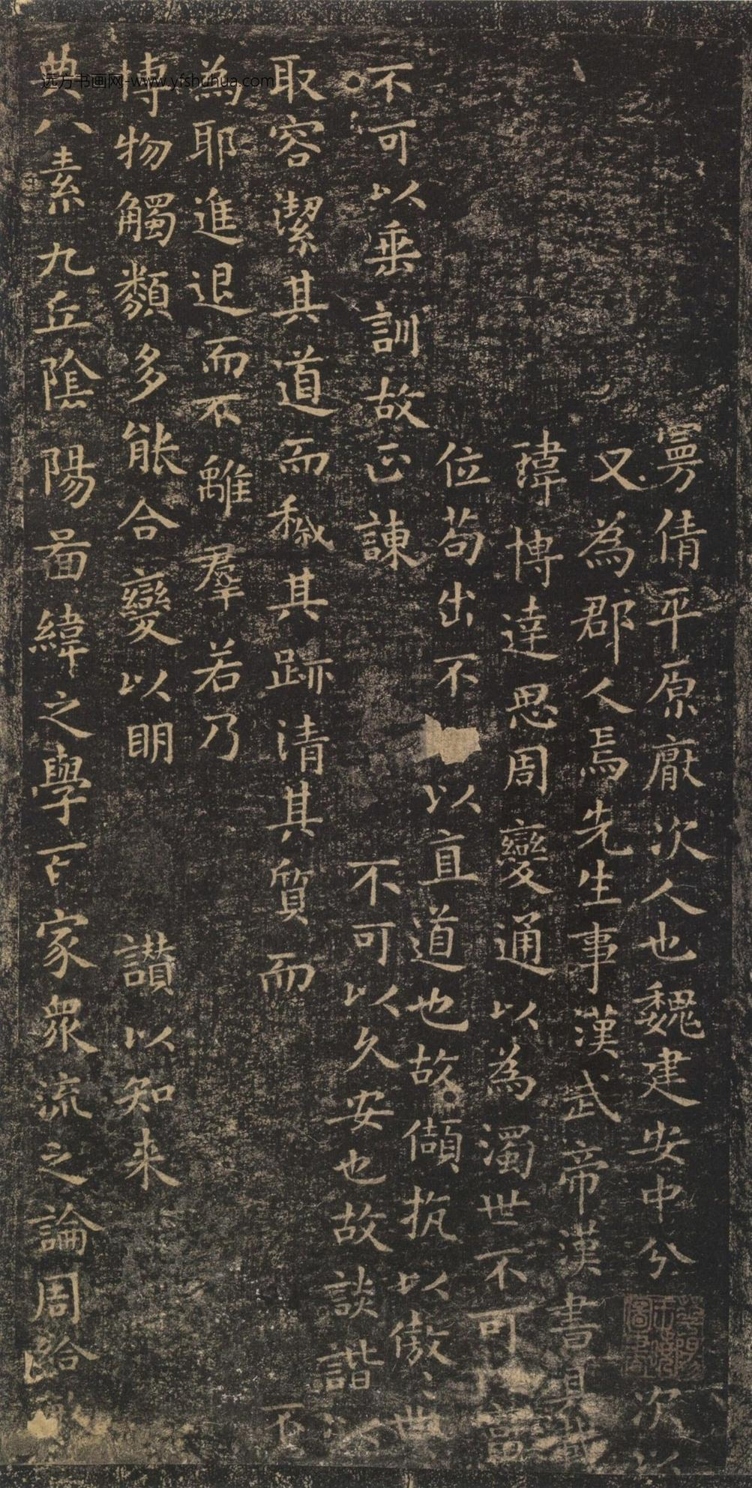 远方书画网-www.yfshuhua.com
曼倩平原厭次人也魏建安中分 次以
又為郡人焉先生事漢武帝漢書具載
瑋博達思周變通以為濁世不可 富
位苟出不 以直道也故頡抗以傲〻世
不可以垂訓故正諫 不可以久安也故談諧〻
取容潔其道而穢其跡清其質而 不
為耶進退而不離羣若乃
博物觸類多能合變以明 讃以知来
典八素九丘陰陽啚緯之學百家衆流之論周給敏